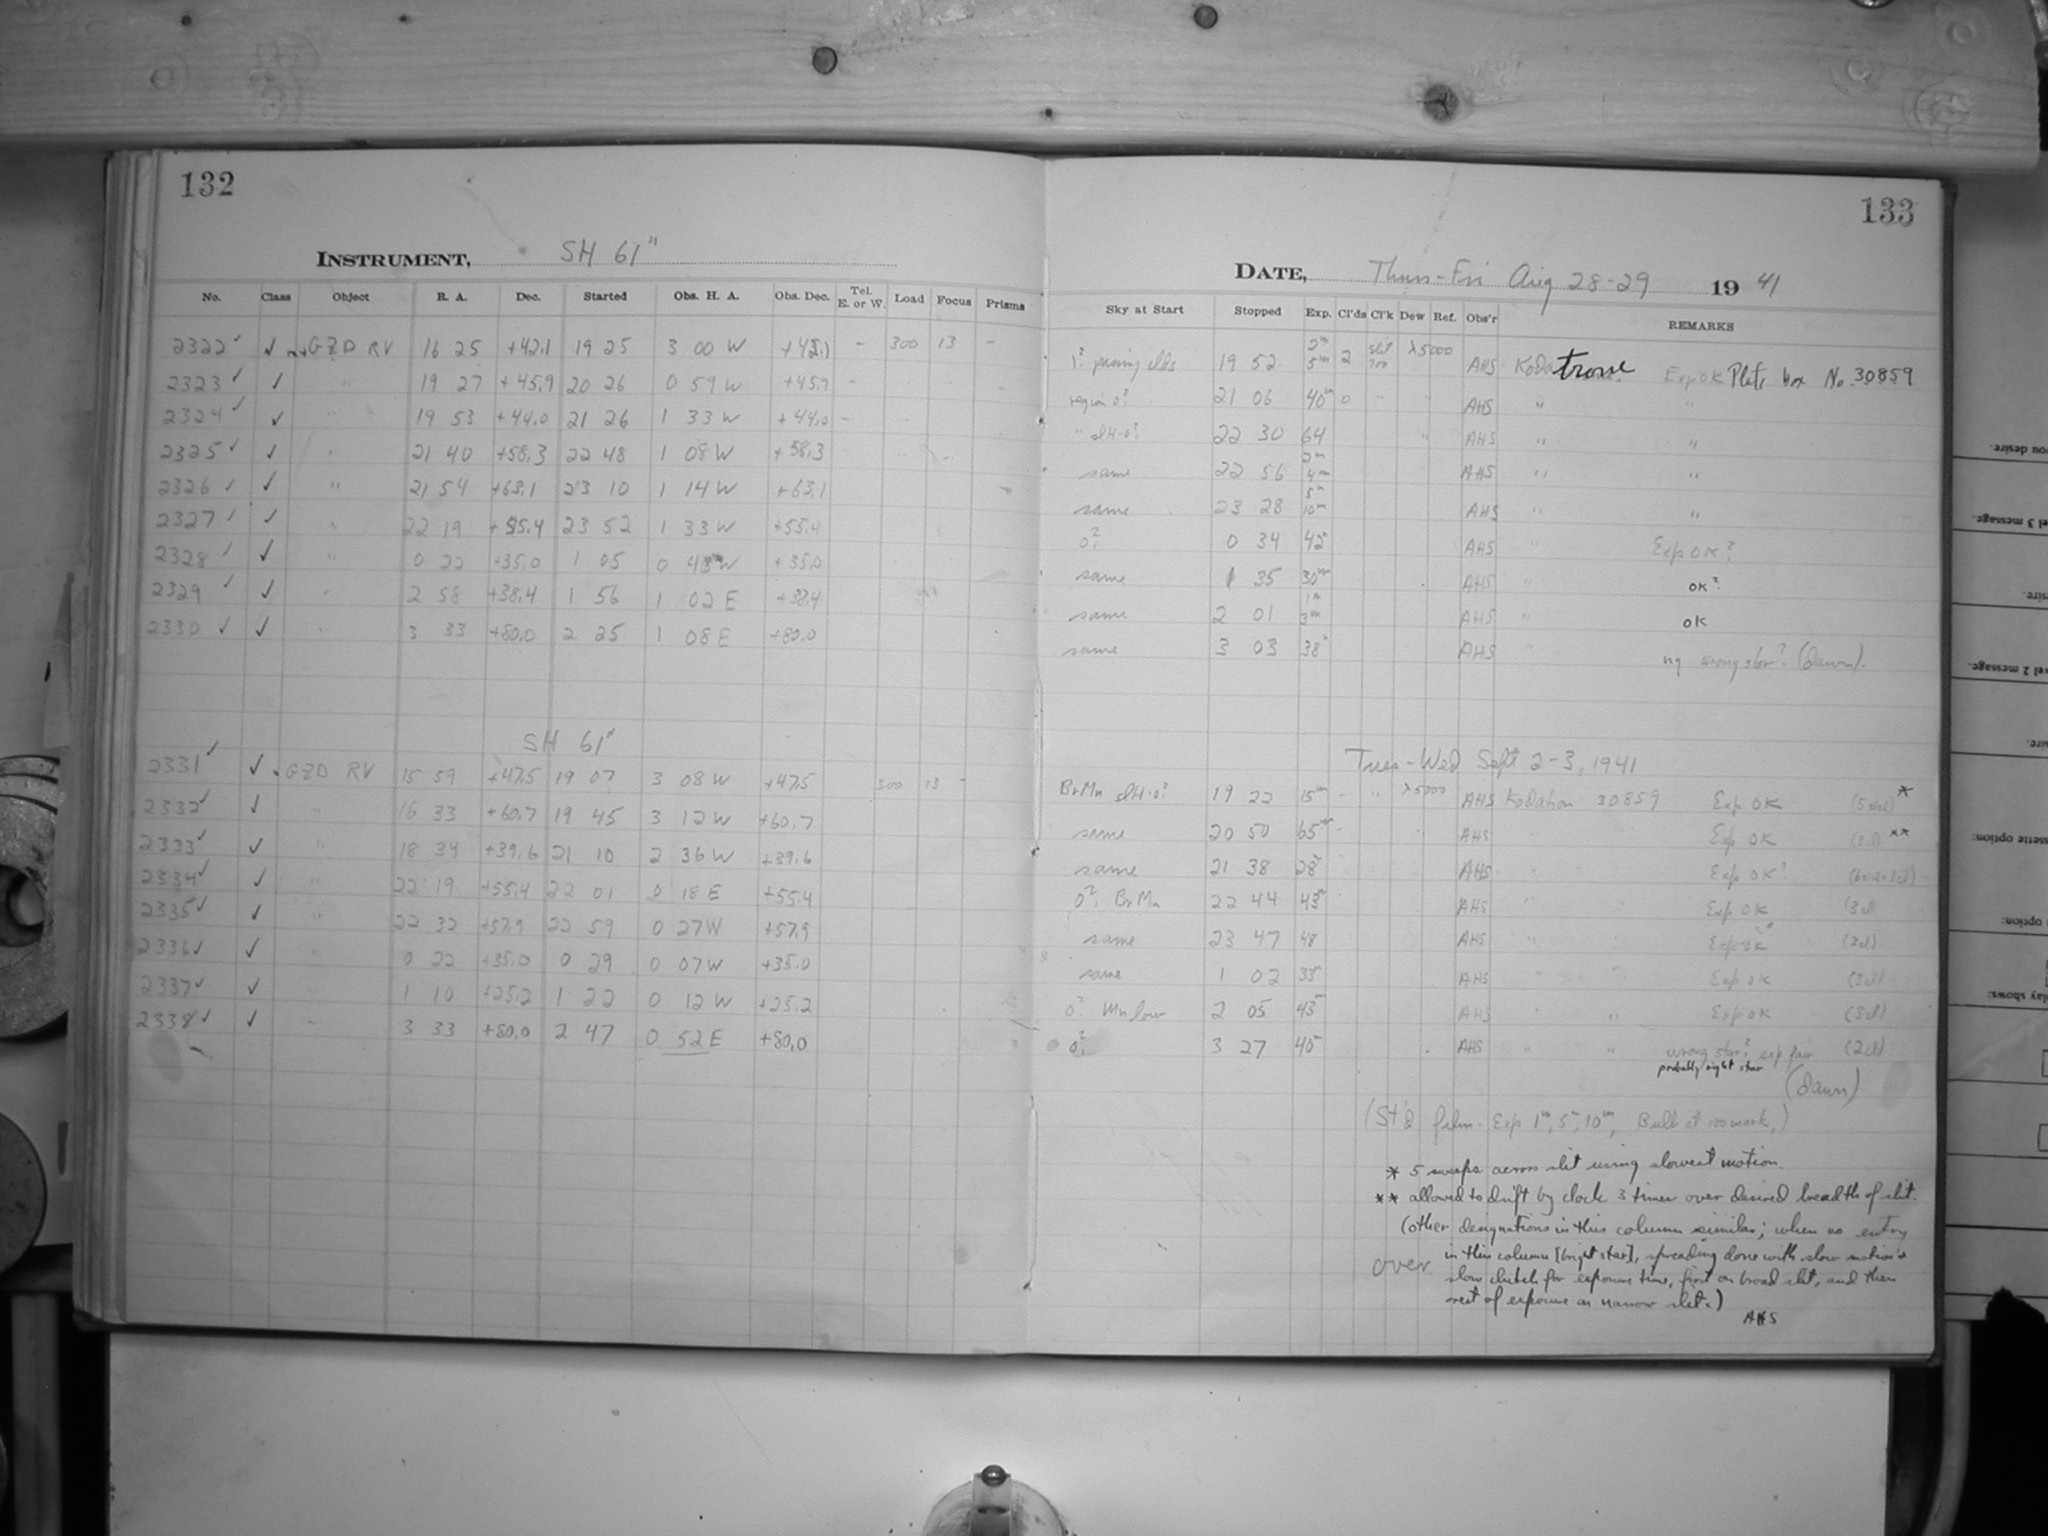 132
INSTRUMENT, SH 61"
No. Class Object R. A. Dec. Started Obs. H. A. Obs. Dec. Tel. E. or W. Load Focus Prisms
2322 ✓ ✓ GZD RV 16 25 +42.1 19 25 3 00 W +42.1 - 300 13 -
2323 ✓ ✓ " 19 27 +45.9 20 26 0 59 W +45.9 -
2324 ✓ ✓ " 19 53 +44.0 21 26 1 33 W +44.0 -
2325 ✓ ✓ " 21 40 +58.3 22 48 1 08 W +58.3
2326 ✓ ✓ " 21 54 +63.1 23 10 1 14 W +63.1
2327 ✓ ✓ " 22 19 +55.4 23 52 1 33 W +55.4
2328 ✓ ✓ " 0 22 +35.0 1 05 0 43 W +35.0
2329 ✓ ✓ " 2 58 +38.4 1 56 1 02 E +38.4
2330 ✓ ✓ " 3 33 +80.0 2 25 1 08 E +80.0
SH 61"
2331 ✓ ✓ GZD RV 15 59 +47.5 19 07 3 08 W +47.5 300 13 -
2332 ✓ ✓ " 16 33 +60.7 19 45 3 12 W +60.7
2333 ✓ ✓ " 18 34 +39.6 21 10 2 36 W +39.6
2334 ✓ ✓ " 22 19 +55.4 22 01 0 18 E +55.4
2335 ✓ ✓ " 22 32 +57.9 22 59 0 27 W +57.9
2336 ✓ ✓ " 0 22 +35.0 0 29 0 07 W +35.0
2337 ✓ ✓ " 1 10 +25.2 1 22 0 12 W +25.2
2338 ✓ ✓ " 3 33 +80.0 2 47 0 52 E +80.0
133
DATE, Thurs-Fri Aug 28-29 19 41
Sky at Start Stopped Exp. Cl'ds Cl'k Dew Ref. Obs'r REMARKS
1? passing clds 19 52 2m 5m 2 slit 300 λ5000 AHS Kodatrone Exp OK Plate box No. 30859
region 0? 21 06 40m 0 " " AHS " "
" slH-0? 22 30 64 " AHS " "
same 22 56 2m 4m AHS " "
same 23 28 5m 10m AHS " "
0? 0 34 42 AHS " Exp OK?
same 1 35 30m AHS " OK?
same 2 01 1m 3m AHS " OK
same 3 03 38 AHS ng wrong star? (dawn).
Tues-Wed Sept 2-3, 1941
BrMn slH-0? 19 22 15m - " λ5000 AHS Kodatron 30859 Exp OK *
same 20 50 65m - AHS Exp OK **
same 21 38 28 AHS Exp OK?
0? BrMn 22 44 43 AHS " Exp OK (3cl)
same 23 47 48 AHS " " Exp OK (3cl)
same 1 02 33 AHS " " Exp OK (3cl)
0? Mn low 2 05 43 AHS " " Exp OK (3cl)
0? 3 27 40 AHS " " wrong star? exp fair (2cl)
probably right star
(Dawn)
(St'd film Exp 1m, 5m, 10m, Bulb at 100 mark,)
* 5 sweeps across slit using slowest motion.
** allowed to drift by clock 3 times over desired breadth of slit.
(other designations in this column similar; when no entry
in this column [bright star], spreading done with slow motion's
over
slow clutch for exposure time, first on broad slit, and then
rest of exposure on narrow slit.)
AHS
you desire.
el 3 message.
vel 2 message.
ssette option:
option:
lay shows: